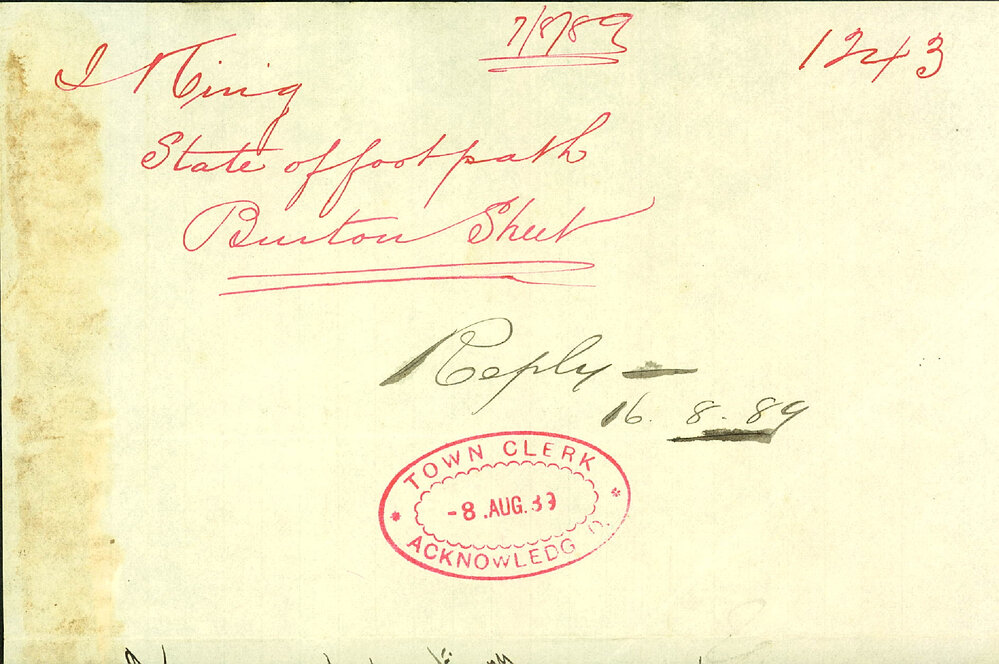 7/8/89
1243
J King
State of footpath
Burton Street
Reply —
16. 8. 89
TOWN CLERK
-8. AUG. 89
ACKNOWLEDG D.